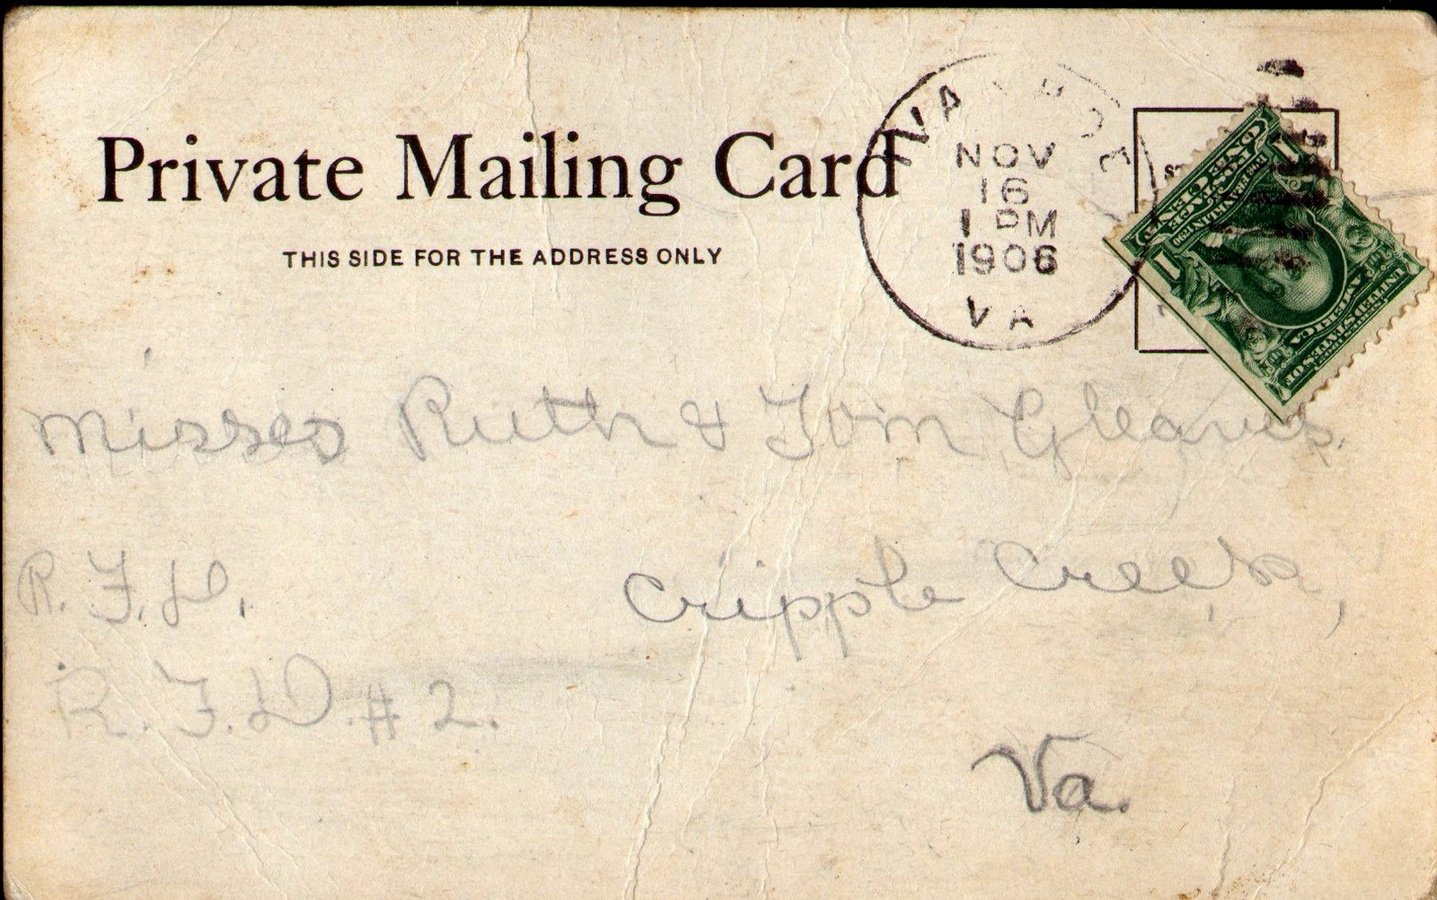 Private Mailing Card
THIS SIDE FOR THE ADDRESS ONLY
IVANHOE
NOV
16
1 PM
1906
VA
ONE CENT
1 1
UNITED STATES OF
AMERICA
Misses Ruth & Tom Gleaves
R. F. D.
Cripple Creek,
R. F. D. # 2.
Va.